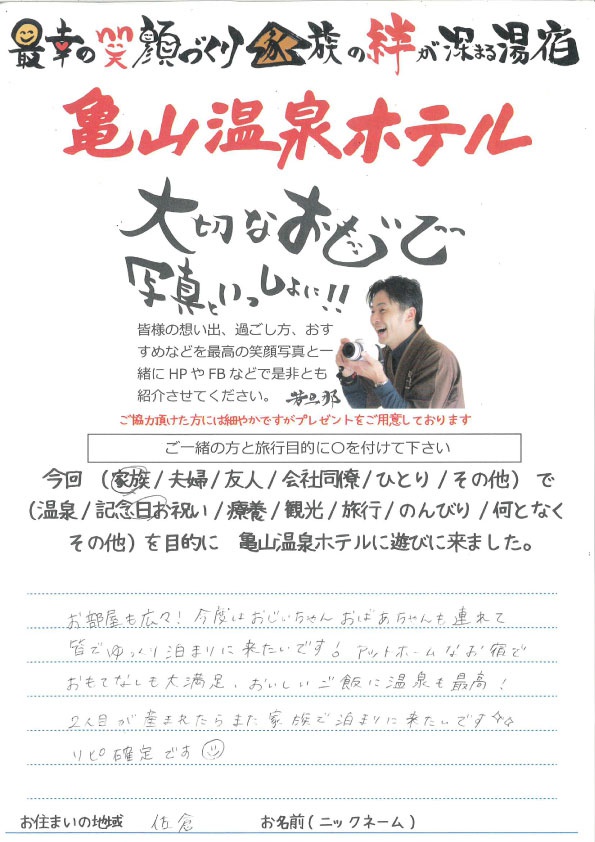 最幸の笑顔づくり家族の絆が深まる湯宿
亀山温泉ホテル
大切なおもいで
写真といっしょに!!
皆様の想い出、過ごし方、おす
すめなどを最高の笑顔写真と一
緒にHPやFBなどで是非とも
紹介させてください。 若旦那
ご協力頂けた方には細やかですがプレゼントをご用意しております
ご一緒の方と旅行目的に〇を付けて下さい
今回 (家族/夫婦/友人/会社同僚/ひとり/その他) で
(温泉/記念日お祝い/療養/観光/旅行/のんびり/何となく
その他) を目的に 亀山温泉ホテルに遊びに来ました。
お部屋も広々! 今度はおじいちゃん おばあちゃんも連れて
皆でゆっくり泊まりに来たいです! アットホームなお宿で
おもてなしも大満足、おいしいご飯に温泉も最高!
2人目が産まれたらまた家族で泊まりに来たいです☆☆
リピ確定です
お住まいの地域 佐倉 お名前(ニックネーム)